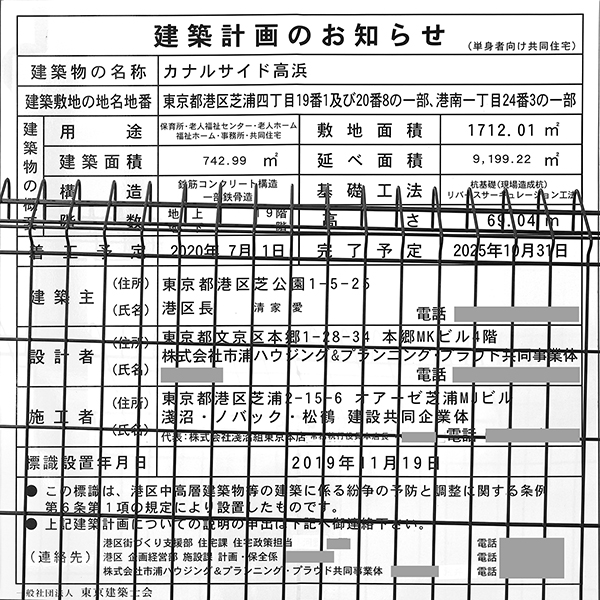 建築計画のお知らせ (単身者向け共同住宅)
建築物の名称 カナルサイド高浜
建築敷地の地名地番 東京都港区芝浦四丁目19番1及び20番8の一部、港南一丁目24番3の一部
建築物の概要
用途 保育所・老人福祉センター・老人ホーム 福祉ホーム・事務所・共同住宅 敷地面積 1712.01 ㎡
建築面積 742.99 ㎡ 延べ面積 9,199.22 ㎡
構造 鉄筋コンクリート構造 一部鉄骨造 基礎工法 杭基礎(現場造成杭) リバースサーキュレーション工法
階数 地上 19階 地下 階 高さ 69.04 m
着工予定 2020年 7月 1日 完了予定 2025年10月31日
建築主 (住所) 東京都港区芝公園1-5-25
(氏名) 港区長 清家 愛 電話
設計者 (住所) 東京都文京区本郷1-28-34 本郷MKビル4階
(氏名) 株式会社市浦ハウジング&プランニング・プラウド共同事業体
電話
施工者 (住所) 東京都港区芝浦2-15-6 オアーゼ芝浦MJビル
(氏名) 淺沼・ノバック・松鶴 建設共同企業体
代表:株式会社淺沼組東京本店 電話
標識設置年月日 2019年11月19日
● この標識は、港区中高層建築物等の建築に係る紛争の予防と調整に関する条例
第6条第1項の規定により設置したものです。
● 上記建築計画についての説明の申出は下記へ御連絡下さい。
(連絡先) 港区街づくり支援部 住宅課 住宅政策担当 電話
港区 企画経営部 施設課 計画・保全係 電話
株式会社市浦ハウジング&プランニング・プラウド共同事業体 電話
一般社団法人 東京建築士会